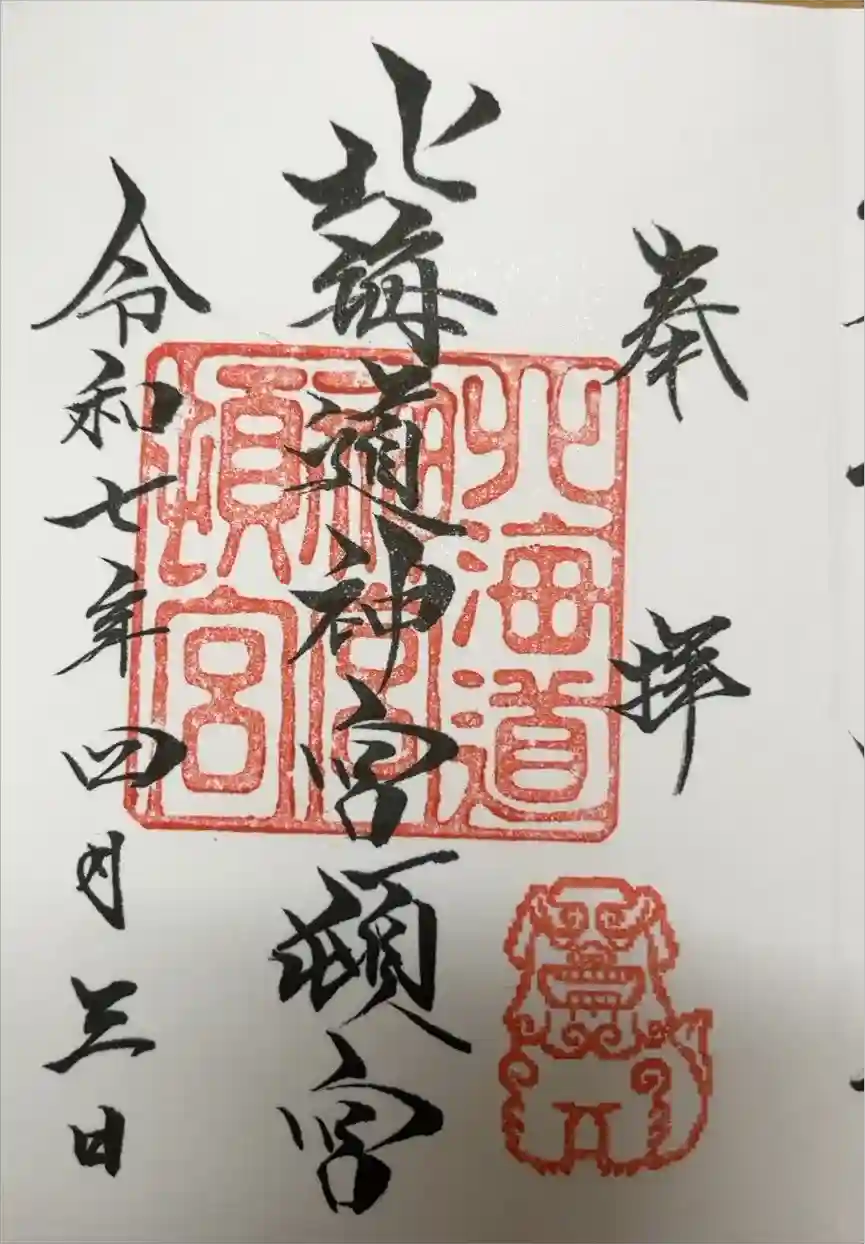 奉拝
北海道神宮頓宮
北海道
神宮
頓宮
令和七年四月三日